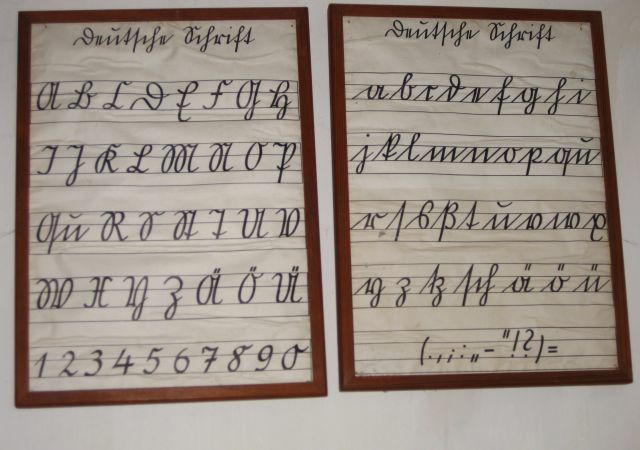 Deutsche Schrift
A B C D E F G H
I J K L M N O P
Qu R S St T U V
W X Y Z Ä Ö Ü
1 2 3 4 5 6 7 8 9 0
Deutsche Schrift
a b c d e f g h i
j k l m n o p qu
r ſ s ß t u v w x
y z tz sch ä ö ü
(.,;:„-"!?)=